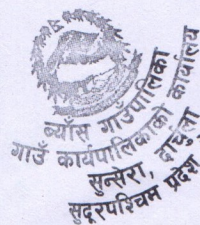 ब्याँस गाउँपालिका
गाउँ कार्यपालिकाको कार्यालय
सुन्सेरा, दार्चुला
सुदूरपश्चिम प्रदेश